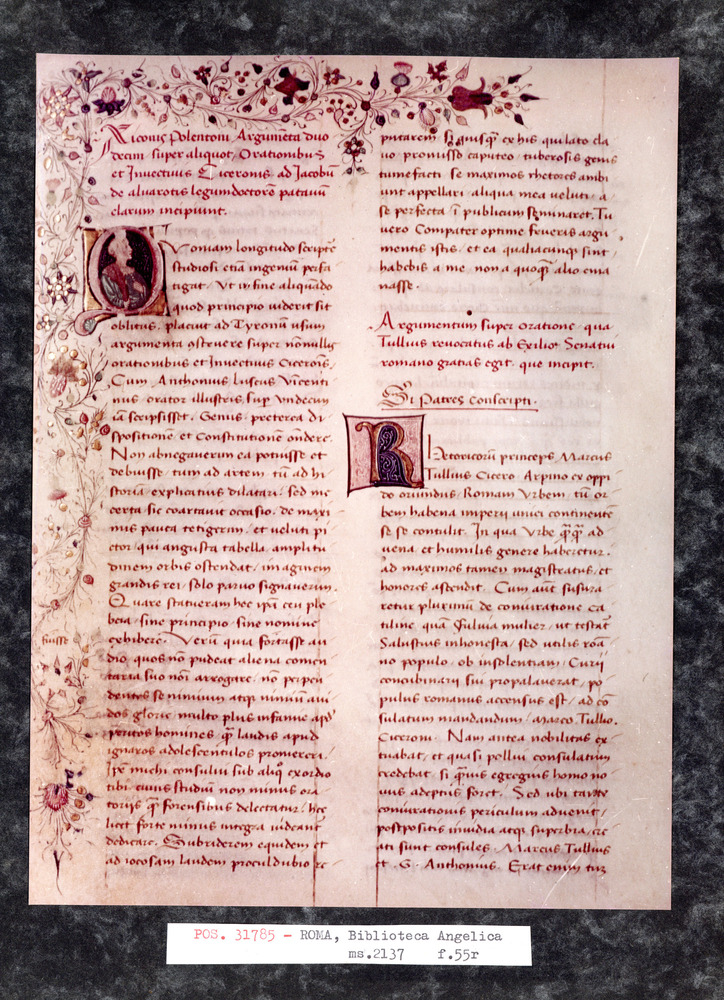 Siconis Polentoni Argumēta duo
decim super aliquot Orationibus
et Invectivis Ciceronis ad Jacobū
de alvarotis legum doctorē patavū
clarum incipiunt.
Quoniam longitudo scripte
studiosi etiā ingeniū persa
tigat. Ut in fine aliquādo
quod principio viderit sit
oblitus, placuit ad Tyronū usum
argumenta astruere super nonullis
orationibus et Invectivis Ciceroīs.
Cum Anthonius luscus Vicenti
nus orator illustris, sup undecim
iā scripsisset. Genus preterea di
spositionē et Constitutionē ondere.
Non abnegaverim ea potuisse et
debuisse tum ad artem tū ad hi
storiā explicatius dilatari. sed me
certa sic coartavit occasio. de maxi
mis pauca tetigerim. et veluti pi
ctor qui angusta tabella amplitu
dinem orbis ostendat. imaginem
grandis rei solo parvo signaverim.
Quare statueram hec ipā ceu ple
beia sine principio sine nomine
exhibere. Verū quia fortasse au
huisse
dio quos nō pudeat aliena comen
taria suo nōi arrogare. ne perpen
dentes se nimium atqꝫ nimiū avi
dos glorie multo plus infamie apd
peritos homines qͣ laudis apud
ignaros adolescentulos promereri.
Ipē michi consului sub aliqͦ exordio
tibi cuius studiū non minus ora
torijs qͣ forensibus delectatur. hec
licet forte minus integra videant
dedicare. Subriderem equidem et
ad iocosam laudem proculdubio re
putarem si quisqͣ ex his qui lato cla
vo promisso caputeo tuberosis genis
tumefacti se maximos rhetores ambi
unt appellari aliqua mea veluti a
se perfecta ī publicum seminaret. Tu
vero Compater optime frueris argu
mentis istis. et ea qualiacunqꝫ sint
habebis a me. non a quoqͣ alio ema
nasse.
Argumentum super oratione qua
Tullius revocatus ab Exilio Senatui
romano gratias egit. que incipit.
Si Patres Conscripti.
Rhetoricorū princeps Marcus
Tullius Cicero Arpino ex oppi
do oriundus Romam Urbem tū or
bem habena imperii unici continentē
se se contulit. In qua Urbe qͣqͣ ad
vena et humilis genere haberetur.
ad maximos tamen magistratus et
honores ascendit. Cum aūt susura
retur plurimū de coniuratione Ca
tiline quā Fulvia mulier ut testat
Salustius inhonesta sed utilis roā
no populo ob insolentiam Curij
concubinarij sui propalaverat. po
pulus romanus accensus est ad cō
sulatum mandandum Marco Tullio.
Ciceroni. Nam antea nobilitas ex
tuabat. et quasi pollui consulatum
credebat si qͥvis egregius homo no
vus adeptus foret. Sed ubi tante
coniurationis periculum advenit
postpositis invidia atqꝫ superbia cre
ati sunt consules Marcus Tullius
et G. Anthonius. Erat enim tuꝫ
POS. 31785 - ROMA, Biblioteca Angelica
ms.2137 f.55r